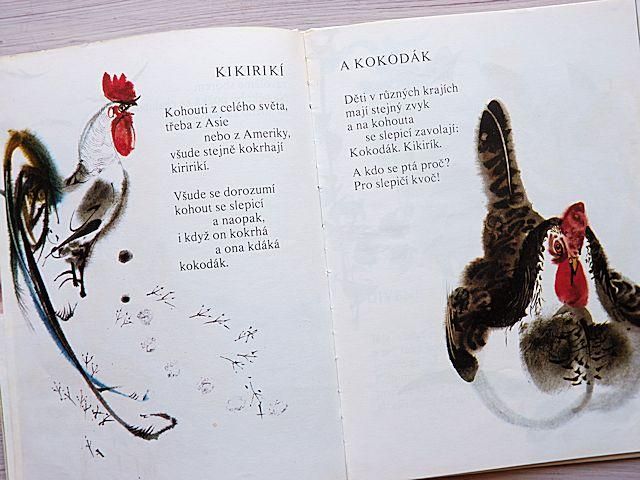 KIKIRIKÍ
Kohouti z celého světa,
třeba z Asie
nebo z Ameriky,
všude stejně kokrhají
kiririkí.
Všude se dorozumí
kohout se slepicí
a naopak,
i když on kokrhá
a ona kdáká
kokodák.
A KOKODÁK
Děti v různých krajích
mají stejný zvyk
a na kohouta
se slepicí zavolají:
Kokodák. Kikirík.
A kdo se ptá proč?
Pro slepičí kvoč!